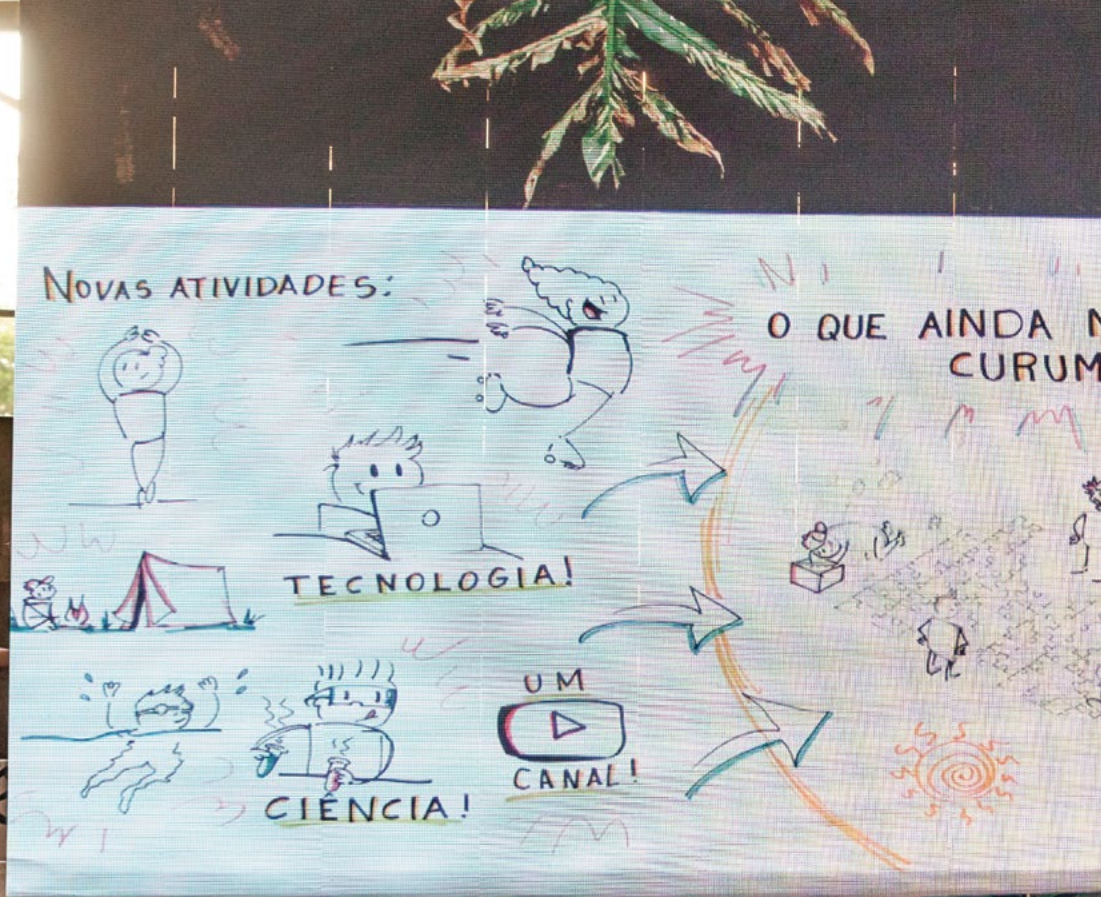 NOVAS ATIVIDADES:
TECNOLOGIA!
CIÊNCIA!
UM
CANAL!
O QUE AINDA
CURUM